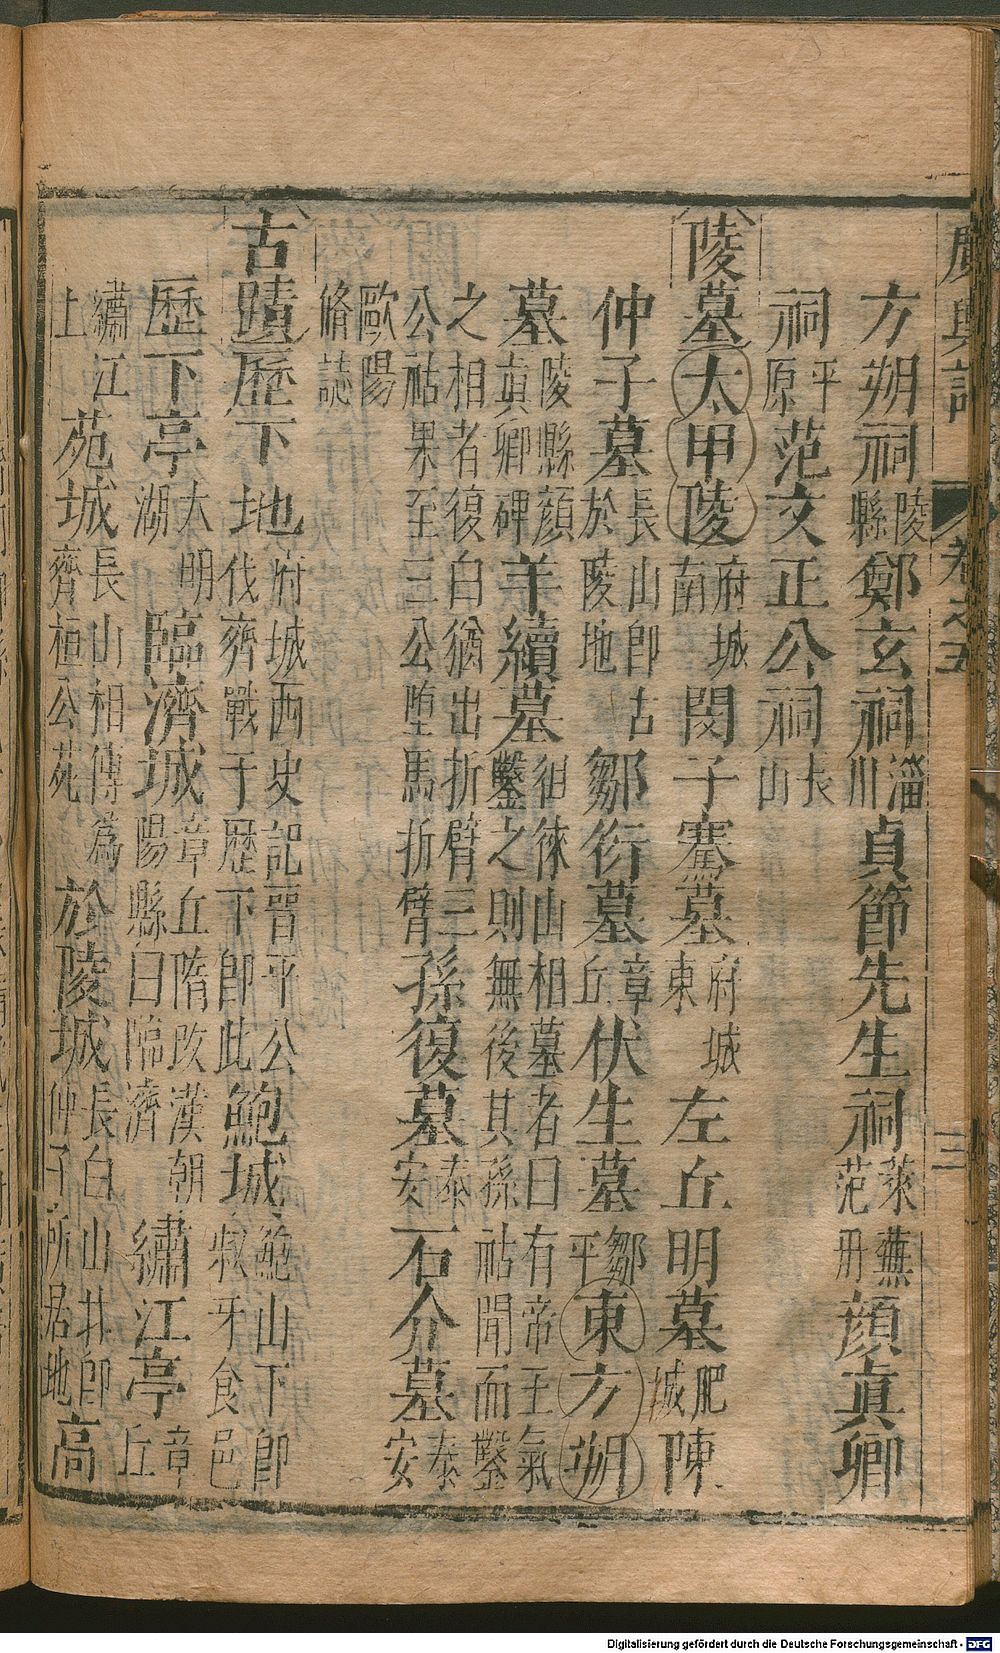 廣輿記 卷之五 三
方朔祠陵縣鄭玄祠淄川貞節先生祠萊蕪范冉顏眞卿
祠平原范文正公祠長山
陵墓太甲陵府城南閔子騫墓府城東左丘明墓肥城陳
仲子墓長山卽古於陵地鄒衍墓章丘伏生墓鄒平東方朔
墓陵縣顏眞卿碑羊續墓徂徠山相墓者曰有帝王氣鑿之則無後其孫祜聞而鑿
之相者復白猶出折臂三公祜果至三公墮馬折臂孫復墓泰安石介墓泰安
歐陽脩誌
古蹟歷下地府城西史記晉平公伐齊戰于歷下卽此鮑城鮑山下卽叔牙食邑
歷下亭大明湖臨濟城章丘隋改漢朝陽縣曰臨濟繡江亭章丘
繡江上苑城長山相傳爲齊桓公苑於陵城長白山北卽仲子所居地高
Digitalisierung gefördert durch die Deutsche Forschungsgemeinschaft - DFG